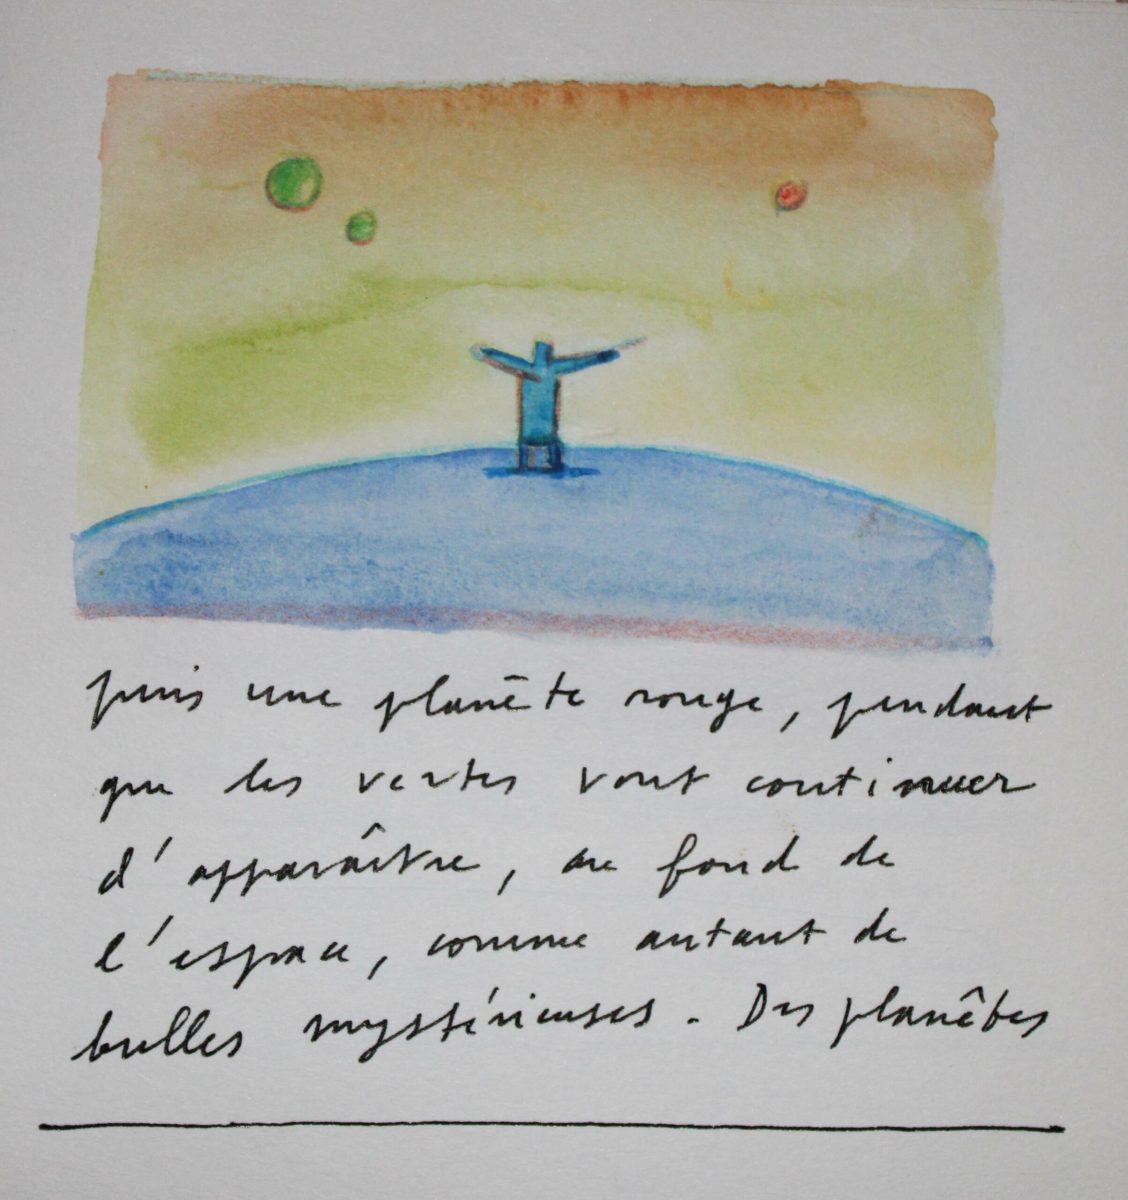 puis une planète rouge, pendant
que les vertes vont continuer
d'apparaître, au fond de
l'espace, comme autant de
bulles mystérieuses. Des planètes